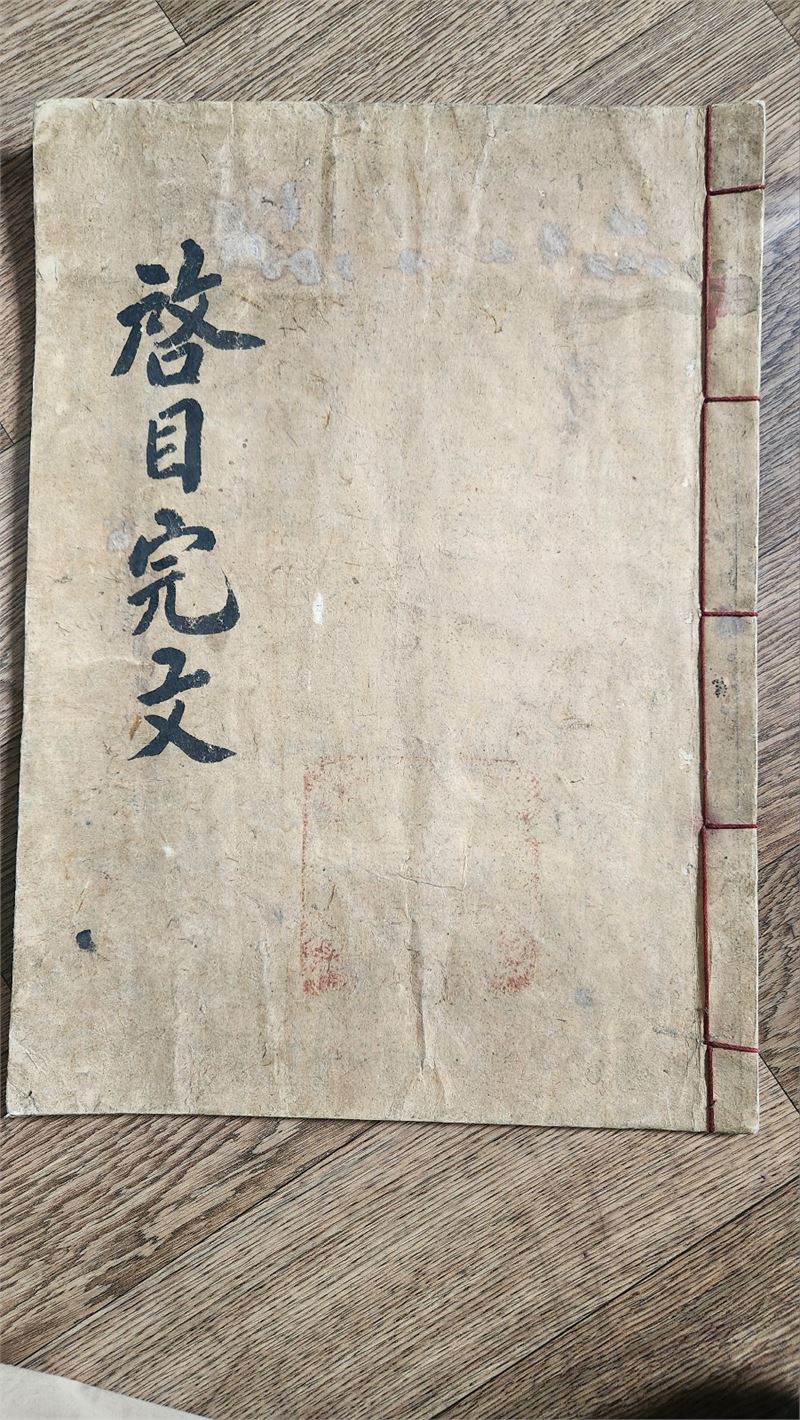 啓目完文